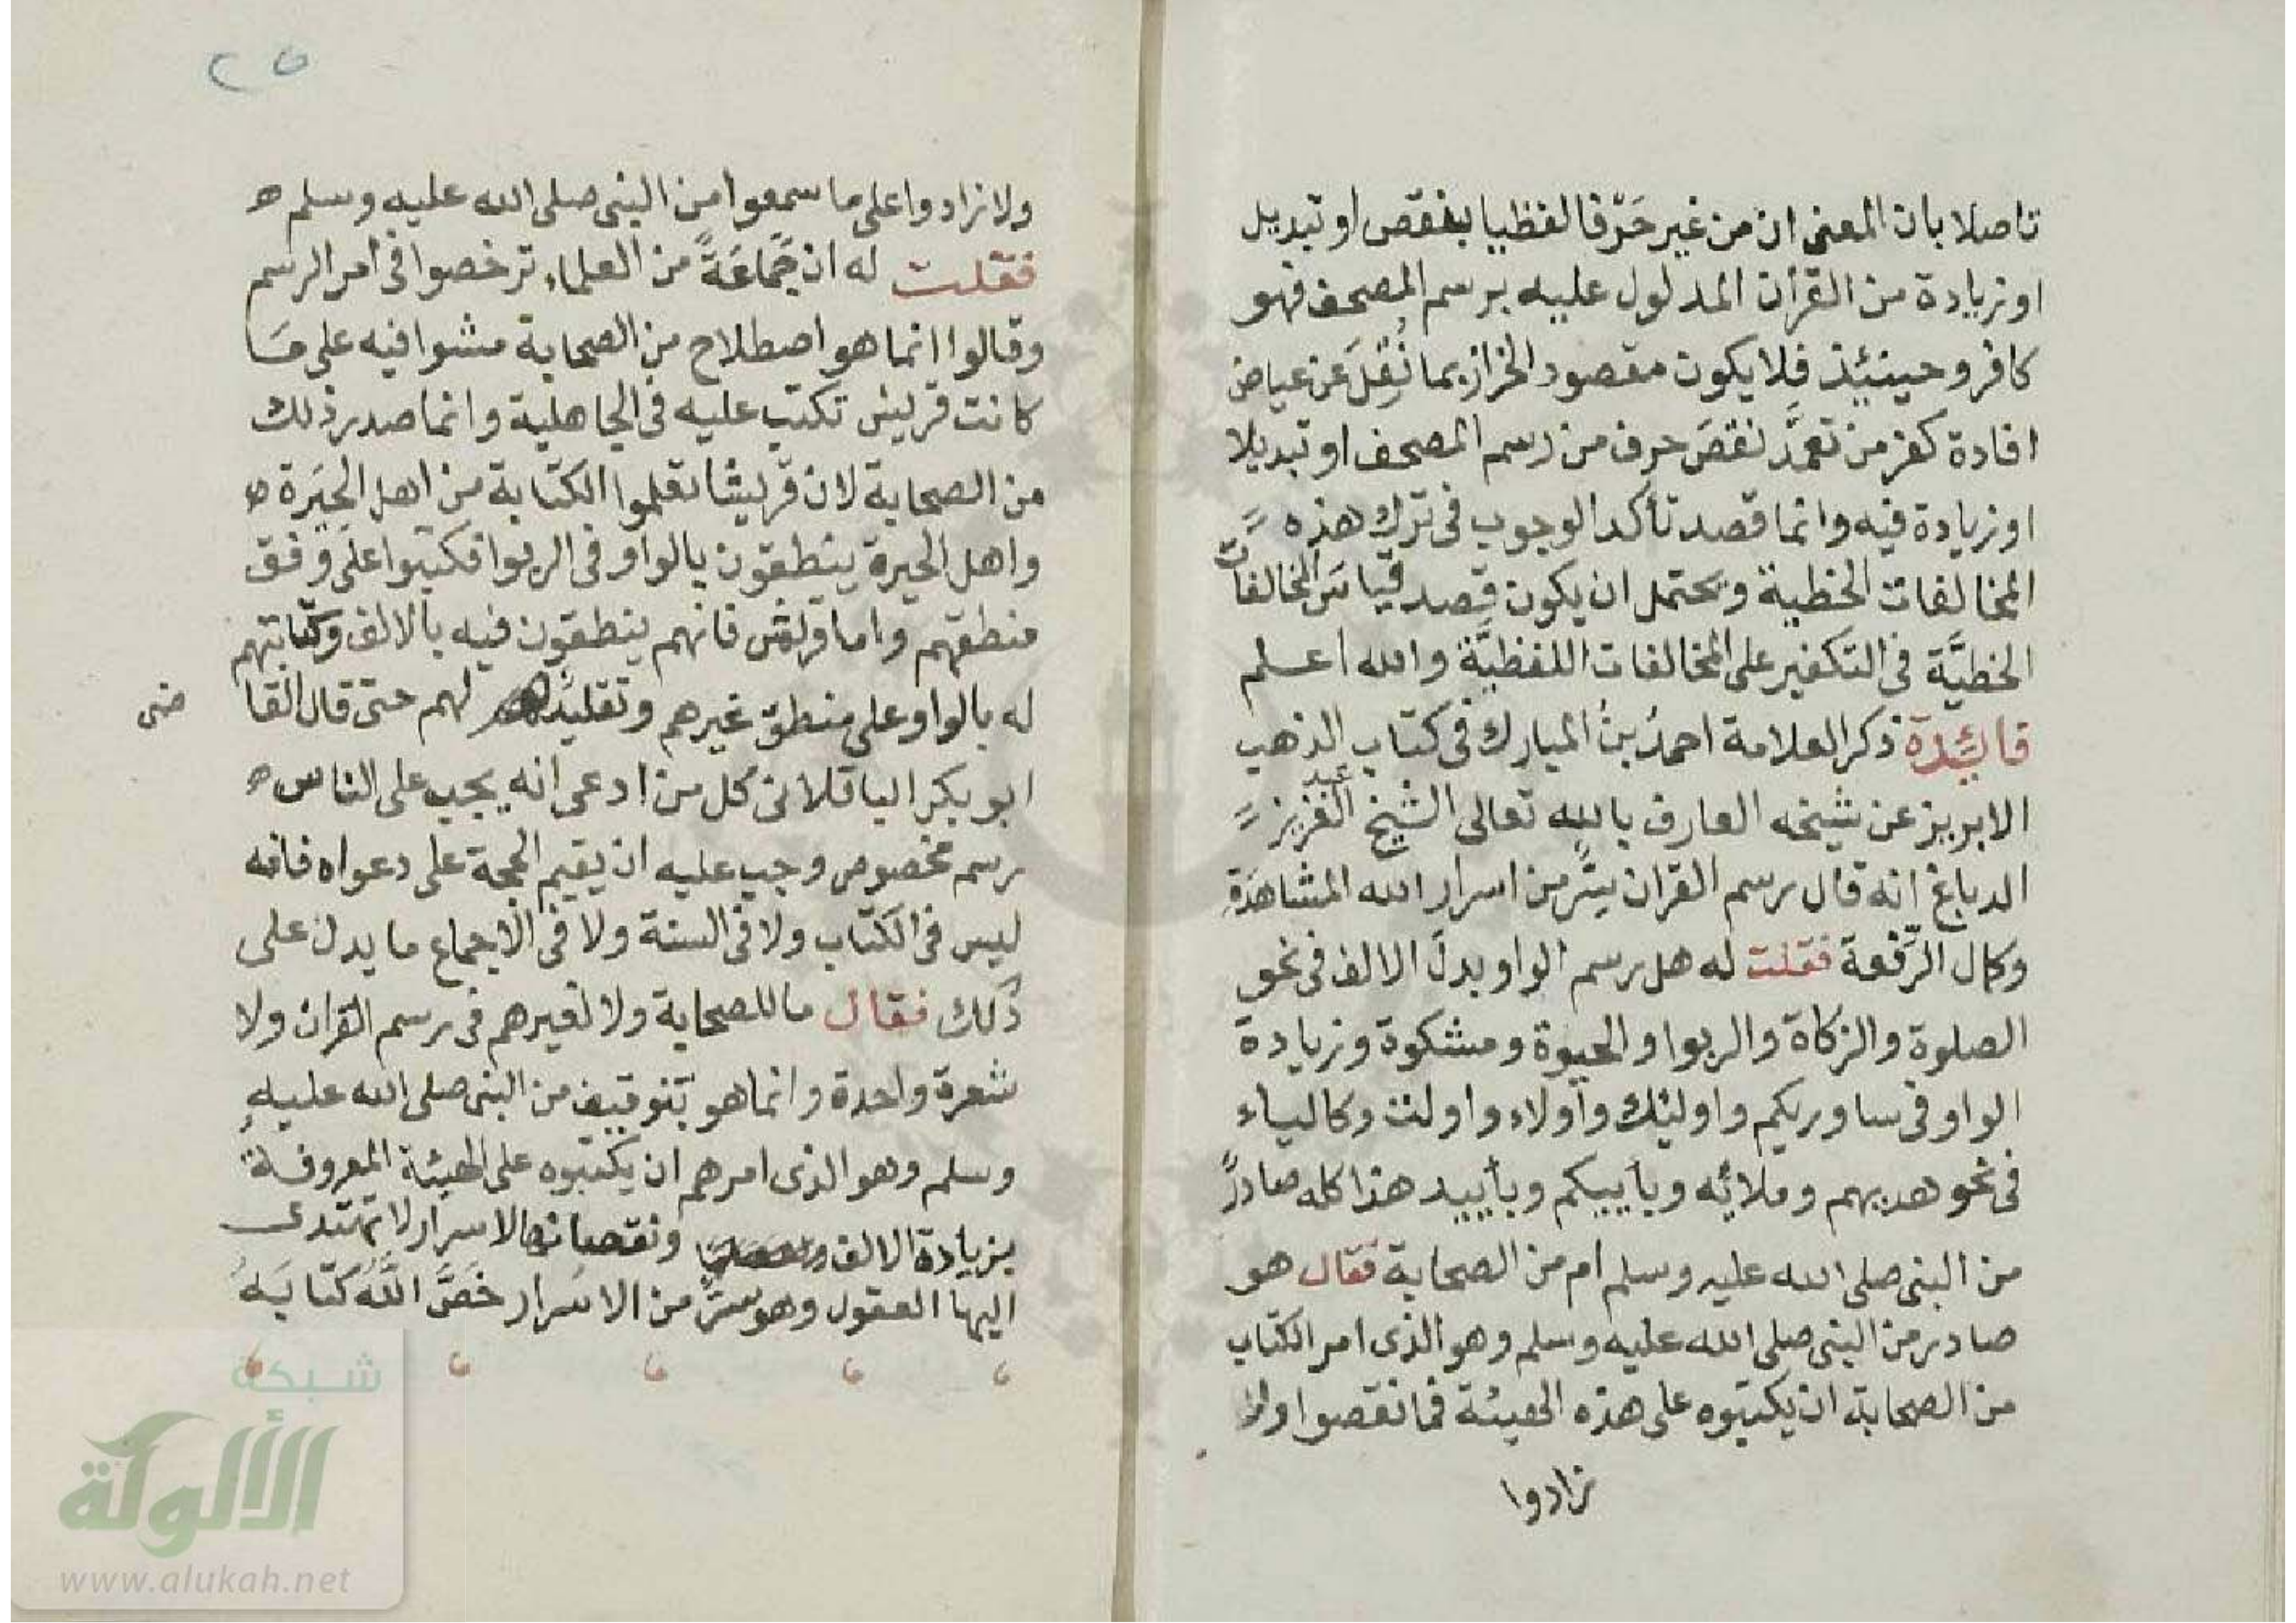 تاصلا بان المعنى ان من غير حرفا لفظيا بنقص او تبديل
او زيادة من القرأن المدلول عليه برسم المصحف فهو
كافر وحينئذ فلا يكون مقصود الخراز بما نُقِلَ عن عياض
افادة كفر من تعمَّد نقصَ حرف من رسم المصحف او تبديلا
او زيادة فيه وانما قصد تأكد الوجوب فى ترك هذه
المخالفات الخطية ويحتمل ان يكون قصد قياسَ المخالفات
الخطيَّة فى التكفير على المخالفات اللفظيَّة والله اعلم
فائدة ذكر العلامة احمدُ بنُ المبارك فى كتاب الذهب
الابريز عن شيخه العارف بالله تعالى الشيخ عبد العزيز
الدباغ انه قال رسم القران سرٌّ من اسرار الله المشاهَدَةِ
وكمال الرِّفعة فقلت له هل رسم الواو بدلَ الالف فى نحو
الصلوة والزكاة والربوا والحيوة ومشكوة وزيادة
الواو فى ساوريكم واولئك وأولاء واولت وكالياء
فى نحو هديهم وملائه وبأييكم وبأييد هذا كله صادرٌ
من النبى صلى الله عليه وسلم ام من الصحابة فقال هو
صادر من النبى صلى الله عليه وسلم وهو الذى امر الكتاب
من الصحابة ان يكتبوه على هذه الهيئة فما نقصوا ولا
زادوا
٢٥
ولا زادوا على ما سمعوا من النبى صلى الله عليه وسلم ه
فقلت له ان جَمَاعَةً من العلماء ترخصوا فى امر الرسم
وقالوا انما هو اصطلاح من الصحابة مشوا فيه على مَا
كانت قريش تكتب عليه فى الجاهلية وانما صدر ذلك
من الصحابة لان قريشا تعلموا الكتابة من اهل الحِيَرة ه
واهل الحيرة ينطقون بالواو فى الربوا فكتبوا على وفق
منطقهم واما قريش فانهم ينطقون فيه بالالف وكتابتهم
له بالواو على منطق غيرهم وتقليد لهم حتى قال القا
ضى
ابو بكر الباقلانى كل من ادعى انه يجب على الناس ه
رسم مخصوص وجب عليه ان يقيم الحجة على دعواه فانه
ليس فى الكتاب ولا فى السنة ولا فى الاجماع ما يدل على
ذلك فقال ما للصحابة ولا لغيرهم فى رسم القران ولا
شعرة واحدة وانما هو بتوقيف من النبى صلى الله عليه
وسلم وهو الذى امرهم ان يكتبوه على الهيئة المعروفة
بزيادة الالف ونقصانها لاسرار لا تهتدى
اليها العقول وهو سرٌّ من الاسَرار خَصَّ اللَّه كتابَهُ
شبكة
الألوكة
www.alukah.net